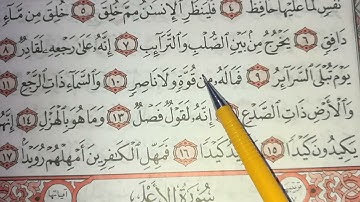 نَفْسٍ لَّمَّا عَلَيْهَا حَافِظٌ ٤ فَلْيَنظُرِ ٱلْإِنسَٰنُ مِمَّ خُلِقَ ٥ خُلِقَ مِن مَّآءٍ
دَافِقٍ ٦ يَخْرُجُ مِنۢ بَيْنِ ٱلصُّلْبِ وَٱلتَّرَآئِبِ ٧ إِنَّهُۥ عَلَىٰ رَجْعِهِۦ لَقَادِرٌ ٨
يَوْمَ تُبْلَى ٱلسَّرَآئِرُ ٩ فَمَا لَهُۥ قُوَّةٍ وَلَا نَاصِرٍ ١٠ وَٱلسَّمَآءِ ذَاتِ ٱلرَّجْعِ ١١
وَٱلْأَرْضِ ذَاتِ ٱلصَّدْعِ إِنَّهُۥ لَقَوْلٌ فَصْلٌ ١٣ وَمَا هُوَ بِٱلْهَزْلِ ١٤ إِنَّهُمْ
يَكِيدُونَ كَيْدًا ١٥ كَيْدًا ١٦ فَمَهِّلِ ٱلْكَٰفِرِينَ أَمْهِلْهُمْ رُوَيْدًۢا ١٧
سُورَةُ ٱلْأَعْلَىٰ